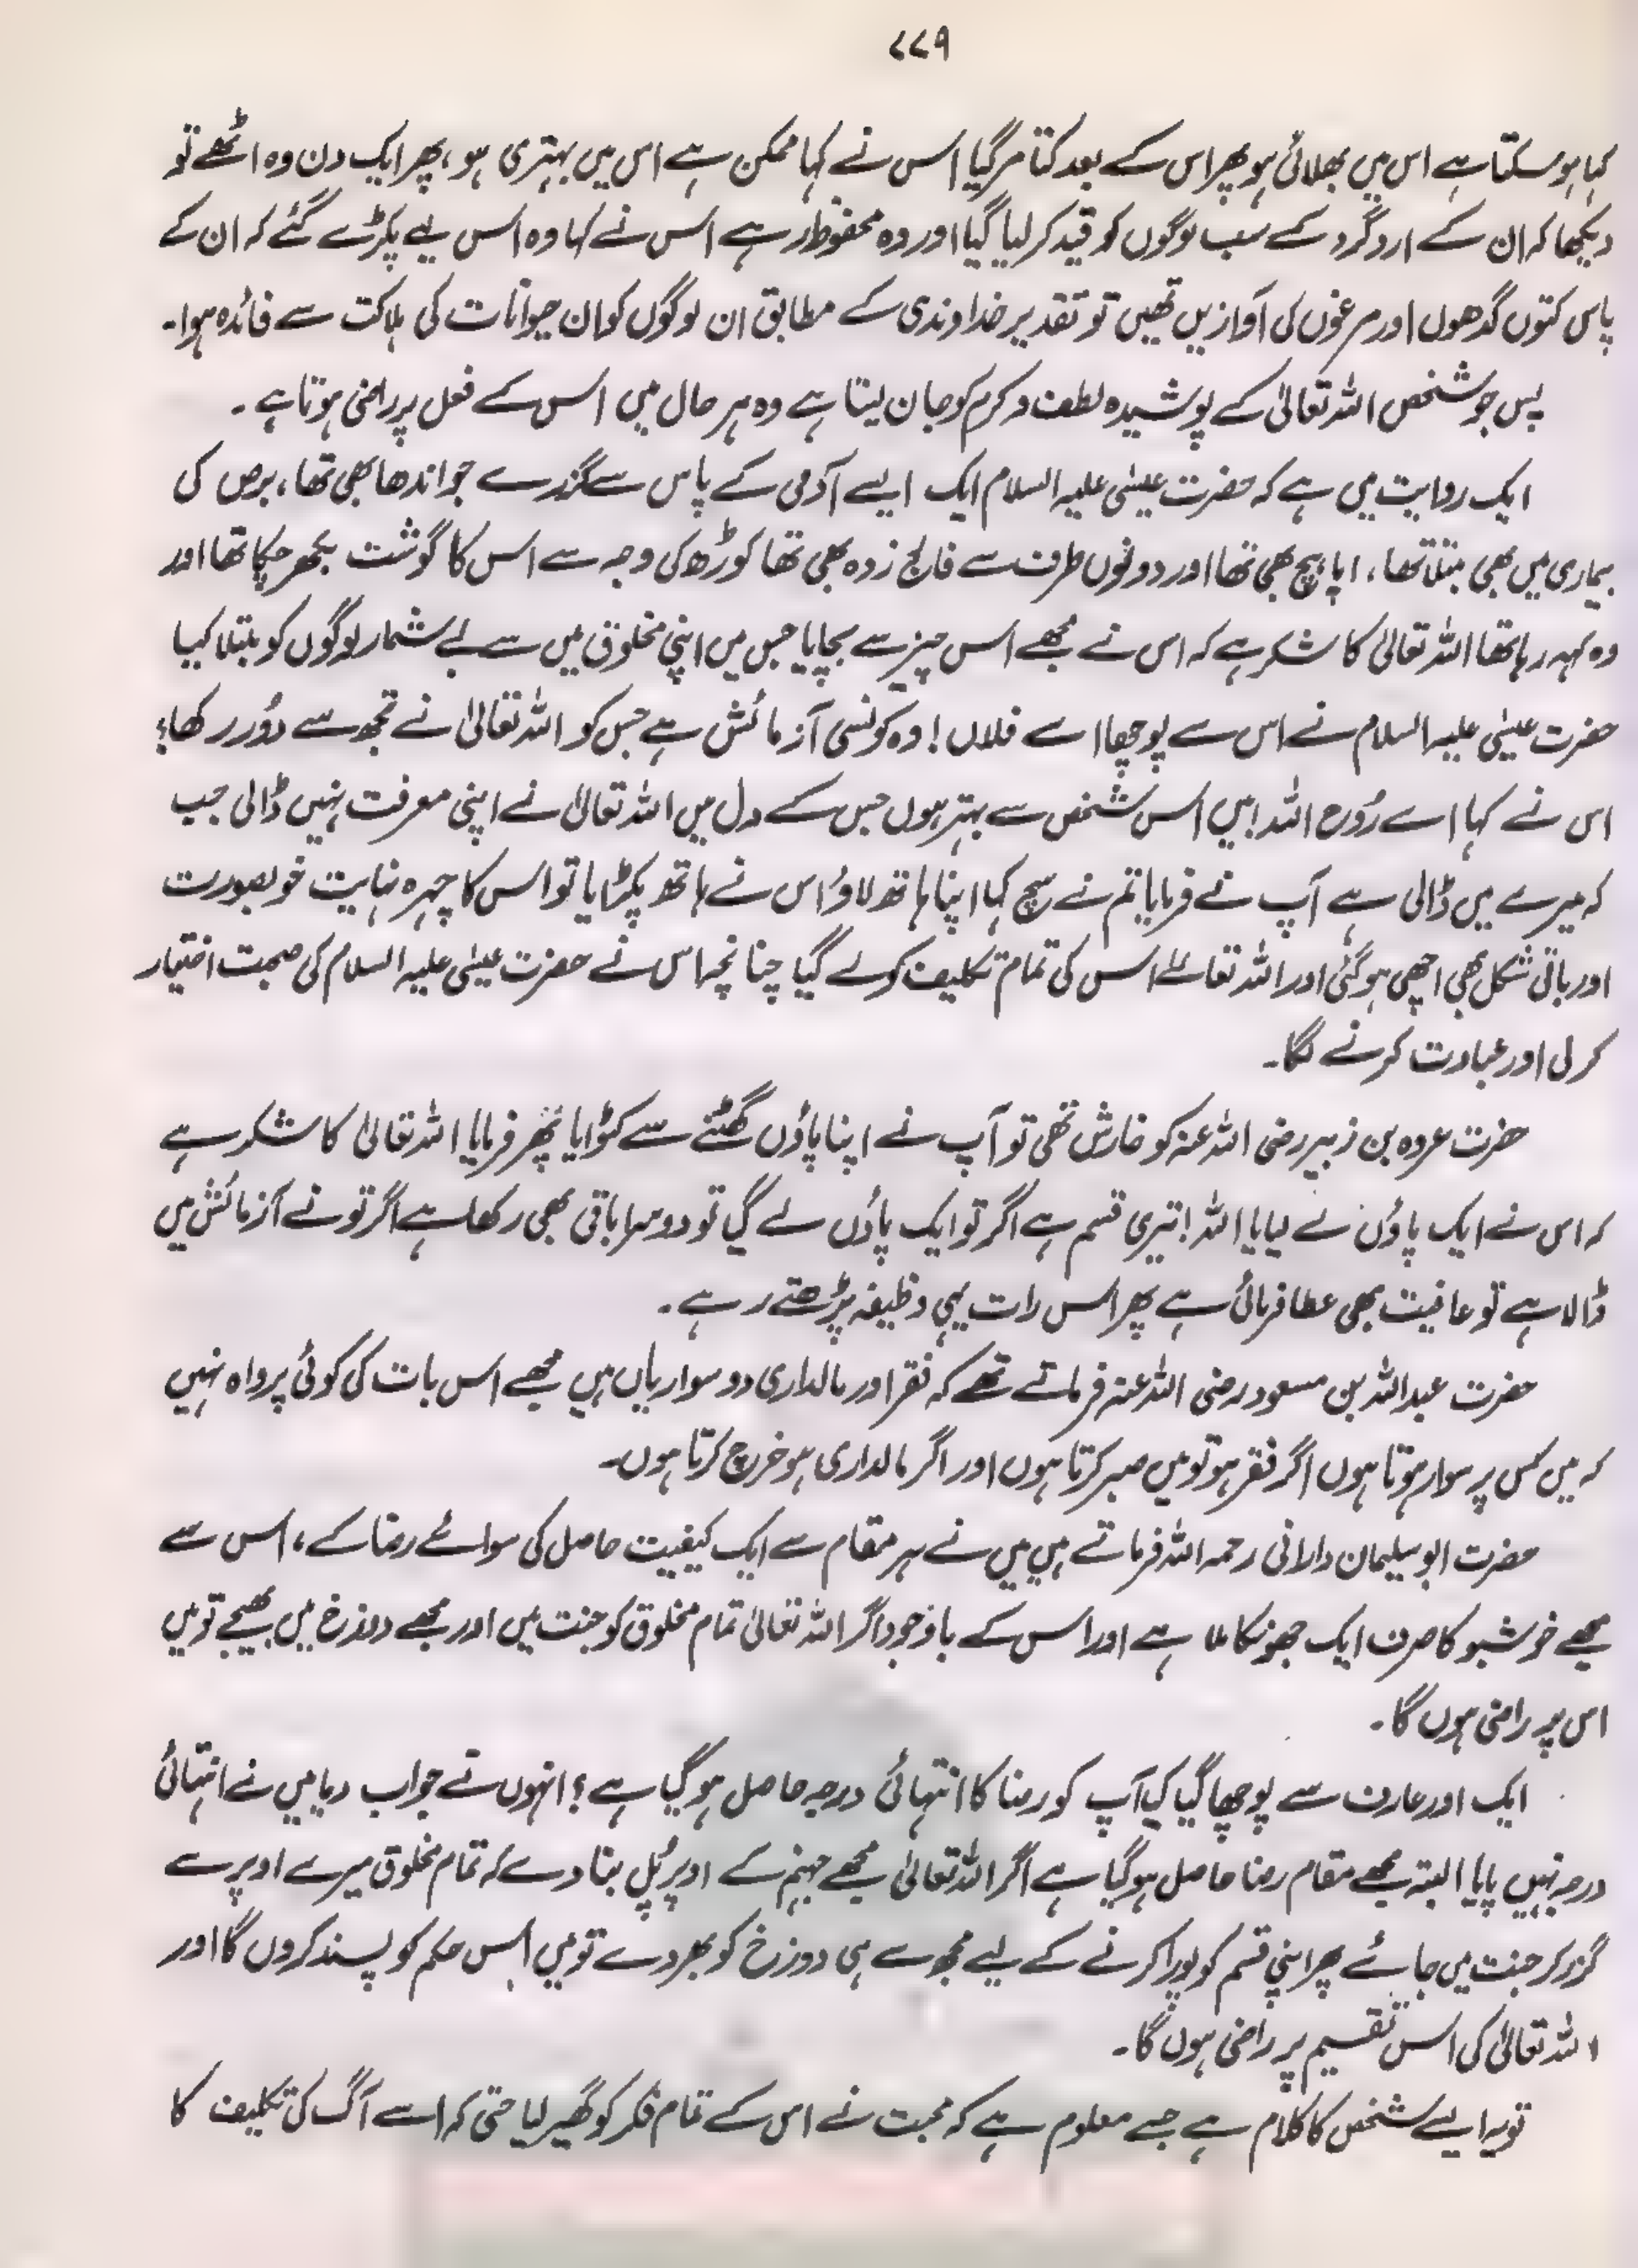 ۷۷۹
کہا ہو سکتا ہے اس میں بھلائی ہو پھر اس کے بعد کتا مر گیا اس نے کہا ممکن ہے اس میں بہتری ہو، پھر ایک دن وہ اٹھے تو
دیکھا کہ ان کے اردگرد کے سب لوگوں کو قید کر لیا گیا اور وہ محفوظ رہے اس نے کہا وہ اس لیے پکڑے گئے کہ ان کے
پاس کتوں گدھوں اور مرغوں کی آوازیں تھیں تو تقدیر خداوندی کے مطابق ان لوگوں کو ان حیوانات کی ہلاکت سے فائدہ ہوا۔
پس جو شخص اللہ تعالیٰ کے پوشیدہ لطف و کرم کو جان لیتا ہے وہ ہر حال میں اس کے فعل پر راضی ہوتا ہے۔
ایک روایت میں ہے کہ حضرت عیسٰی علیہ السلام ایک ایسے آدمی کے پاس سے گزرے جو اندھا بھی تھا، برص کی
بیماری میں بھی مبتلا تھا، اپاہج بھی تھا اور دونوں طرف سے فالج زدہ بھی تھا کوڑھ کی وجہ سے اس کا گوشت بکھر چکا تھا اور
وہ کہہ رہا تھا اللہ تعالیٰ کا شکر ہے کہ اس نے مجھے اس چیز سے بچایا جس میں اپنی مخلوق میں سے بے شمار لوگوں کو مبتلا کیا
حضرت عیسٰی علیہ السلام نے اس سے پوچھا اے فلاں! وہ کونسی آزمائش ہے جس کو اللہ تعالیٰ نے تجھ سے دُور رکھا؟
اس نے کہا اے رُوح اللہ! میں اس شخص سے بہتر ہوں جس کے دل میں اللہ تعالیٰ نے اپنی معرفت نہیں ڈالی جب
کہ میرے میں ڈالی ہے آپ نے فرمایا تم نے سچ کہا اپنا ہاتھ لاؤ اس نے ہاتھ پکڑایا تو اس کا چہرہ نہایت خوبصورت
اور باقی شکل بھی اچھی ہو گئی اور اللہ تعالےٰ اس کی تمام تکلیف کو لے گیا چنانچہ اس نے حضرت عیسٰی علیہ السلام کی صحبت اختیار
کر لی اور عبادت کرنے لگا۔
حضرت عروہ بن زبیر رضی اللہ عنہ کو خارش تھی تو آپ نے اپنا پاؤں گھٹنے سے کٹوایا پھر فرمایا اللہ تعالیٰ کا شکر ہے
کہ اس نے ایک پاؤں لے لیا یا اللہ! تیری قسم ہے اگر تو ایک پاؤں لے گیا تو دوسرا باقی بھی رکھا ہے اگر تو نے آزمائش میں
ڈالا ہے تو عافیت بھی عطا فرمائی ہے پھر اس رات یہی وظیفہ پڑھتے رہے۔
حضرت عبداللہ بن مسعود رضی اللہ عنہ فرماتے تھے کہ فقر اور مالداری دو سواریاں ہیں مجھے اس بات کی کوئی پرواہ نہیں
کہ میں کس پر سوار ہوتا ہوں اگر فقر ہو تو میں صبر کرتا ہوں اور اگر مالداری ہو خرچ کرتا ہوں۔
حضرت ابو سلیمان دارانی رحمہ اللہ فرماتے ہیں میں نے ہر مقام سے ایک کیفیت حاصل کی سوائے رضا کے، اس سے
مجھے خوشبو کا صرف ایک جھونکا ملا ہے اور اس کے باوجود اگر اللہ تعالیٰ تمام مخلوق کو جنت میں اور مجھے دوزخ میں بھیجے تو میں
اس پر راضی ہوں گا۔
ایک اور عارف سے پوچھا گیا کیا آپ کو رضا کا انتہائی درجہ حاصل ہو گیا ہے؟ انہوں نے جواب دیا میں نے انتہائی
درجہ نہیں پایا البتہ مجھے مقام رضا حاصل ہو گیا ہے اگر اللہ تعالیٰ مجھے جہنم کے اوپر پُل بنا دے کہ تمام مخلوق میرے اوپر سے
گزر کر جنت میں جائے پھر اپنی قسم کو پورا کرنے کے لیے مجھ سے ہی دوزخ کو بھر دے تو میں اس حکم کو پسند کروں گا اور
اللہ تعالیٰ کی اس تقسیم پر راضی ہوں گا۔
تو یہ ایسے شخص کا کلام ہے جسے معلوم ہے کہ محبت نے اس کے تمام فکر کو گھیر لیا حتی کہ اسے آگ کی تکلیف کا